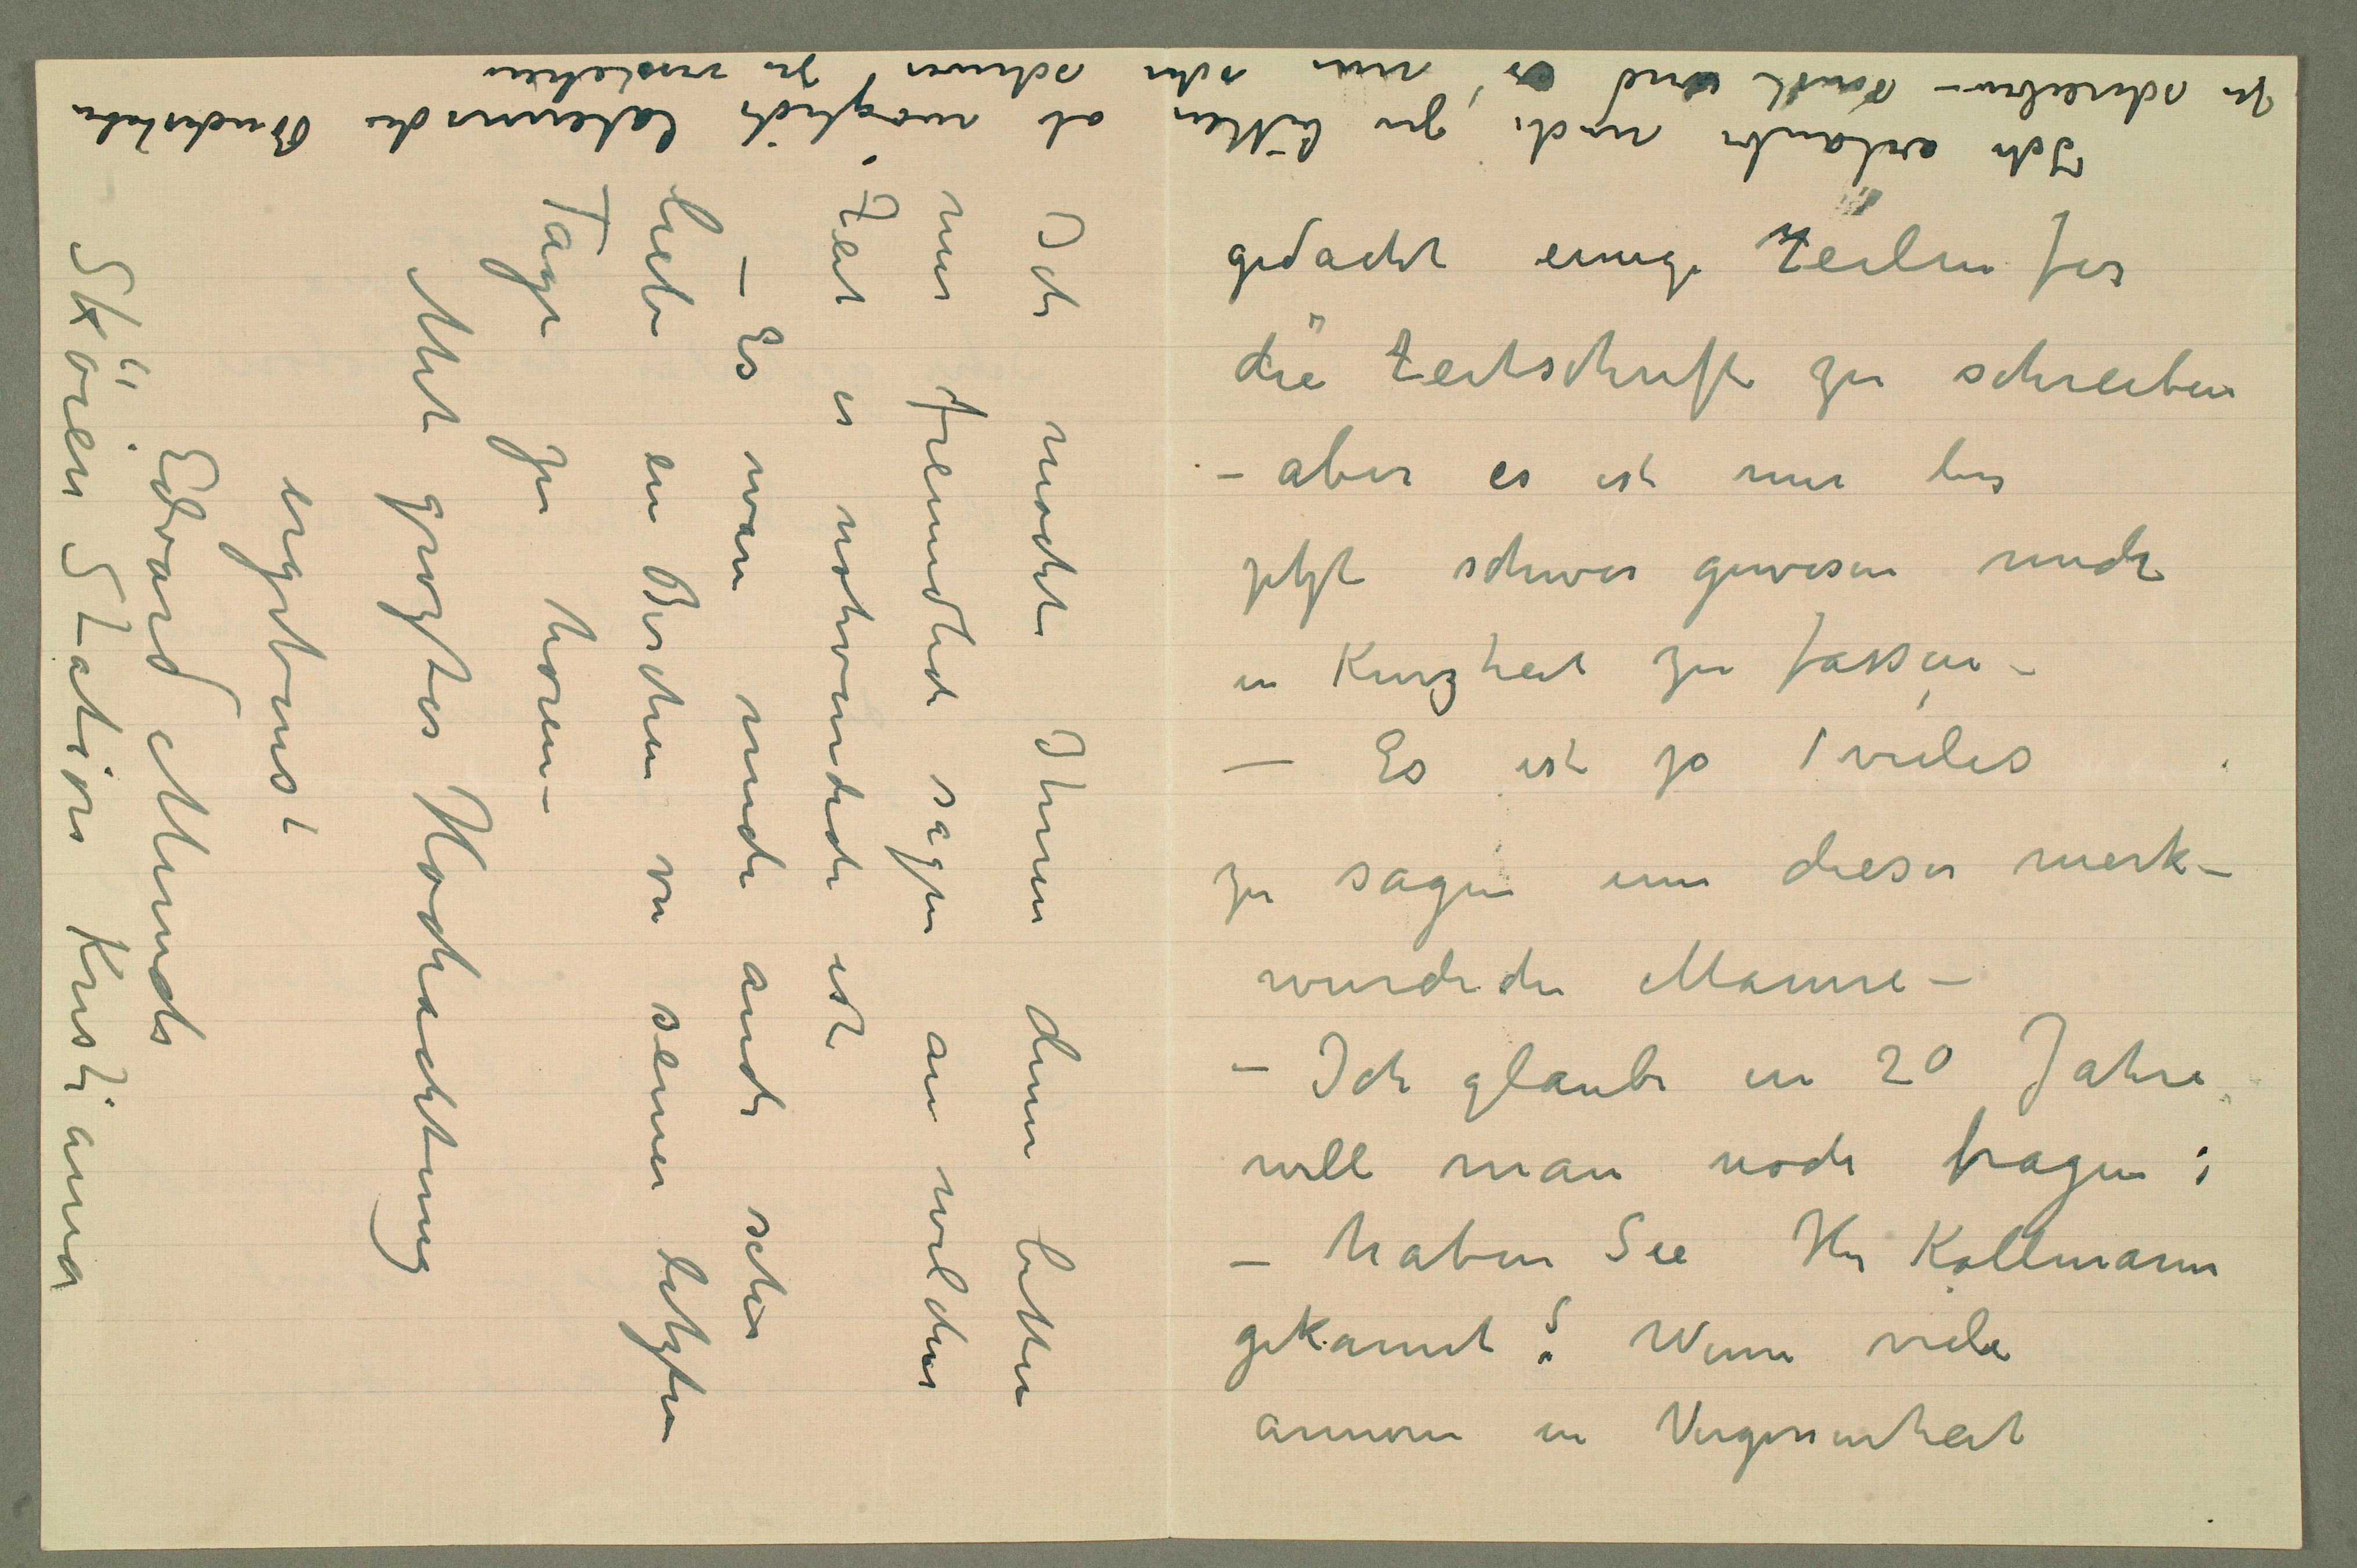 gedacht einige Zeilen für
die Zeitschrift zu schreiben
– aber es ist mir bis
jetzt schwer gewesen mich
in Kurzheit zu fassen –
– Es ist ja vieles
zu sagen um dieser merk–
wurdiche Manne –
– Ich glaube in 20 Jahre
will man noch fragen:
– haben Sie Hr Kollmann
gekannt? Wenn viele
annere in Vergessenheit
Ich mochte Ihnen denn bitten
mir freundlich sagen an welcher
Zeit es nothvendich ist
– Es wäre mich auch sehr
liebe ein Bischen von seiner letzten
Tage zu horen –
Mit grozter Hochachtung
ergebenst
Edvard Munch
Skøien Station Kristiania
Ich erlaube mich zu bitten ob möglich lateinische Buchstabe
zu schreiben – sonst wird es mir sehr schwer zu verstehen